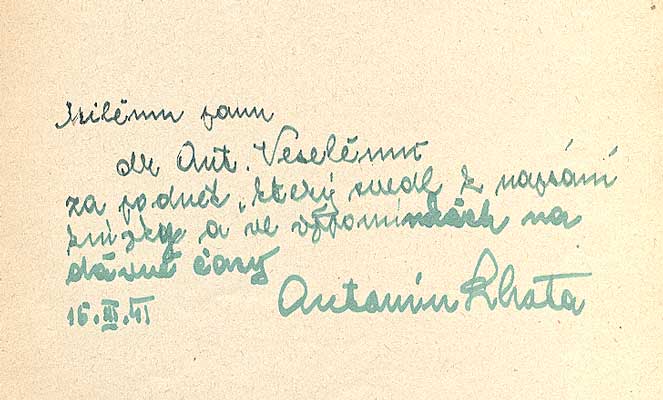 Milému panu
dr Ant. Veselému
za podnět, který svedl k napsání
knížky a ve vzpomínkách na
dávné časy
16.III.41 Antonín